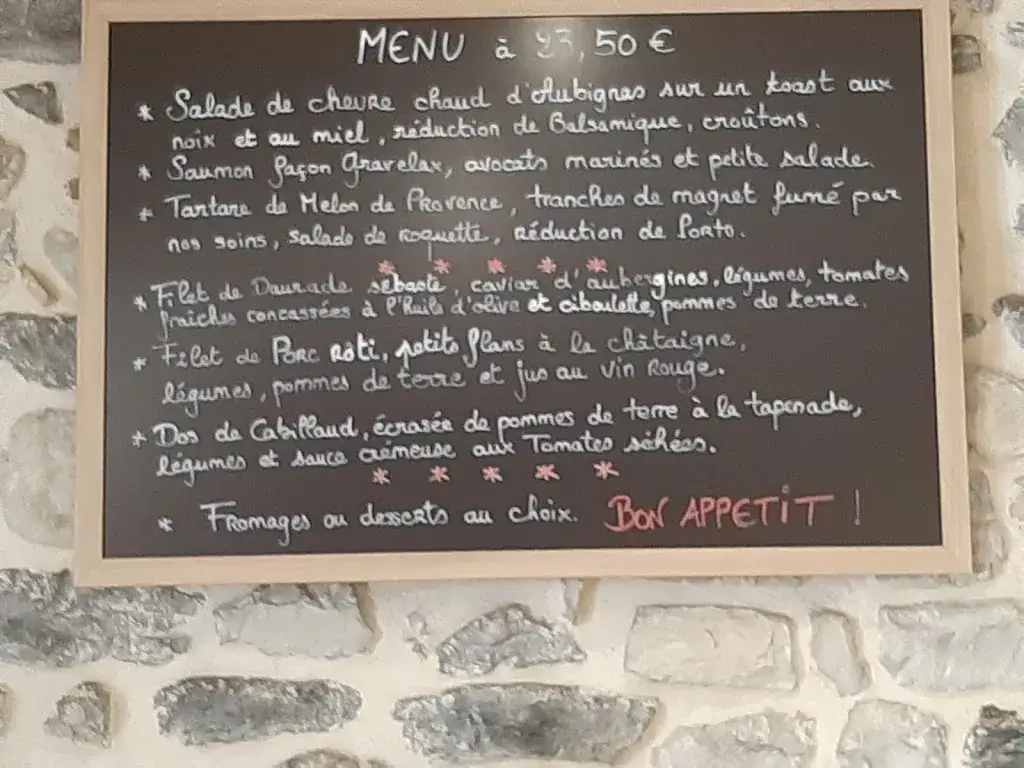 MENU à 27,50 €
* Salade de chevre chaud d'Aubignas sur un toast aux
noix et au miel, réduction de Balsamique, croûtons.
* Saumon façon Gravelax, avocats marinés et petite salade.
* Tartare de Melon de Provence, tranches de magret fumé par
nos soins, salade de roquette, réduction de Porto.
* * * * *
* Filet de Daurade sébaste, caviar d'aubergines, légumes, tomates
fraiches concassées à l'Huile d'olive et ciboulette, pommes de terre.
* Filet de Porc Rôti, petits flans à la châtaigne,
légumes, pommes de terre et jus au vin Rouge.
* Dos de Cabillaud, écrasée de pommes de terre à la tapenade,
légumes et sauce crémeuse aux Tomates séhées.
* * * * *
* Fromages ou desserts au choix. BON APPETIT !